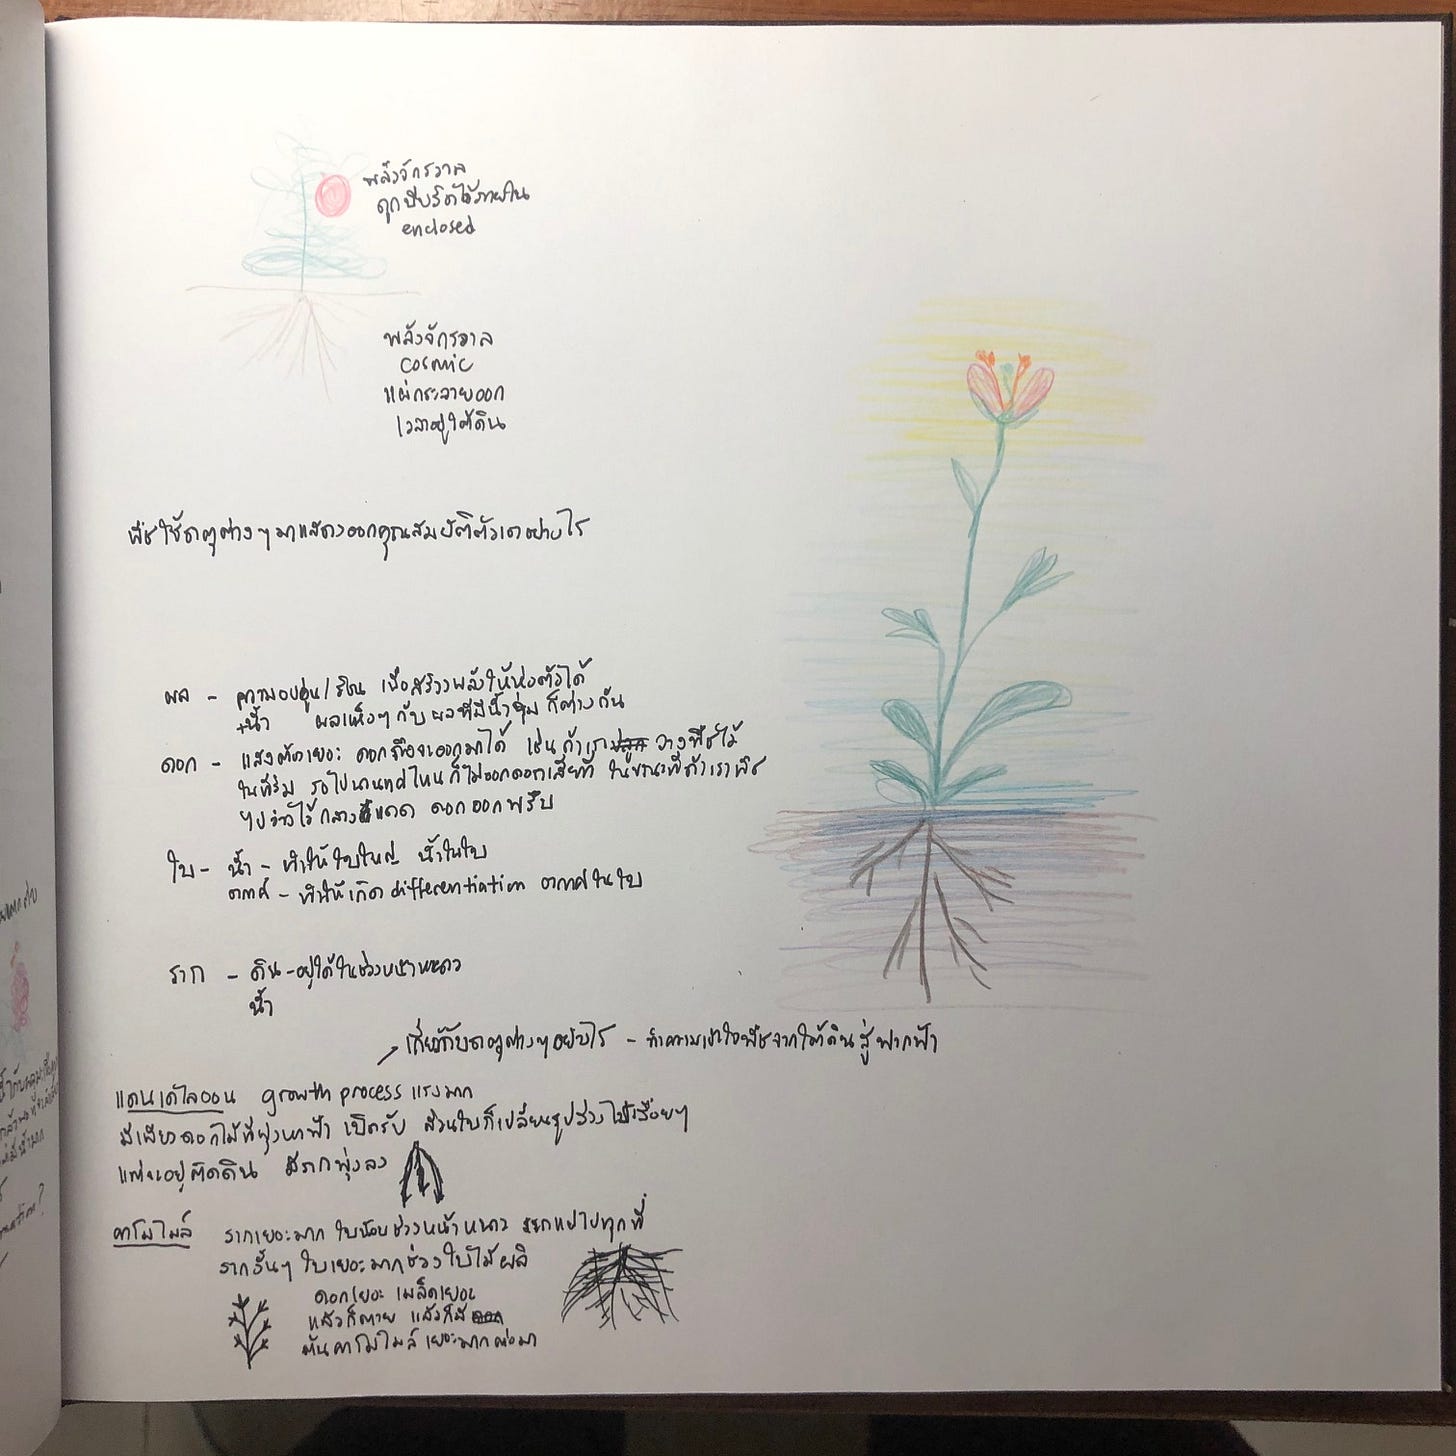 พลังจักรวาล
ถูกบีบรัดไว้ภายใน
enclosed
พลังจักรวาล
cosmic
แผ่กระจายออก
เวลาอยู่ใต้ดิน
พืชใช้ธาตุต่างๆ มาแสดงออกคุณสมบัติตัวเองอย่างไร
ผล - ความอบอุ่น/ร้อน เพื่อสร้างพลังให้ห่อตัวได้
+น้ำ ผลแห้งๆ กับ ผลที่มีน้ำชุ่ม ก็ต่างกัน
ดอก - แสงต้องเยอะ ดอกถึงจะออกมาได้ เช่น ถ้าเรา วางพืชไว้
ในที่ร่ม รอไปนานแค่ไหนก็ไม่ออกดอกเสียที ในขณะที่ถ้าเราพืช
ไปวางไว้กลางแดด ดอกออกพรึบ
ใบ - น้ำ - ทำให้ใบใหญ่ น้ำในใบ
อากาศ - ทำให้เกิด differentiation อากาศในใบ
ราก - ดิน - อยู่ได้ในช่วงหน้าหนาว
น้ำ
เกี่ยวกับธาตุต่างๆ อย่างไร - ทำความเข้าใจพืชจากใต้ดินสู่ฟากฟ้า
แดนดิไลออน growth process แรงมาก
มีเสียวดอกไม้ที่พุ่งหาฟ้า เปิดรับ ส่วนใบก็เปลี่ยนรูปร่างไปเรื่อยๆ
แต่จะอยู่ติดดิน มีรากพุ่งลง
คาโมไมล์ รากเยอะมาก ใบน้อยช่วงหน้าหนาว รากแผ่ไปทุกที่
รากสั้นๆ ใบเยอะมากช่วงใบไม้ผลิ
ดอกเยอะ เมล็ดเยอะ
แล้วก็ตาย แล้วก็มี
ต้นคาโมไมล์ เยอะมากต่อมา